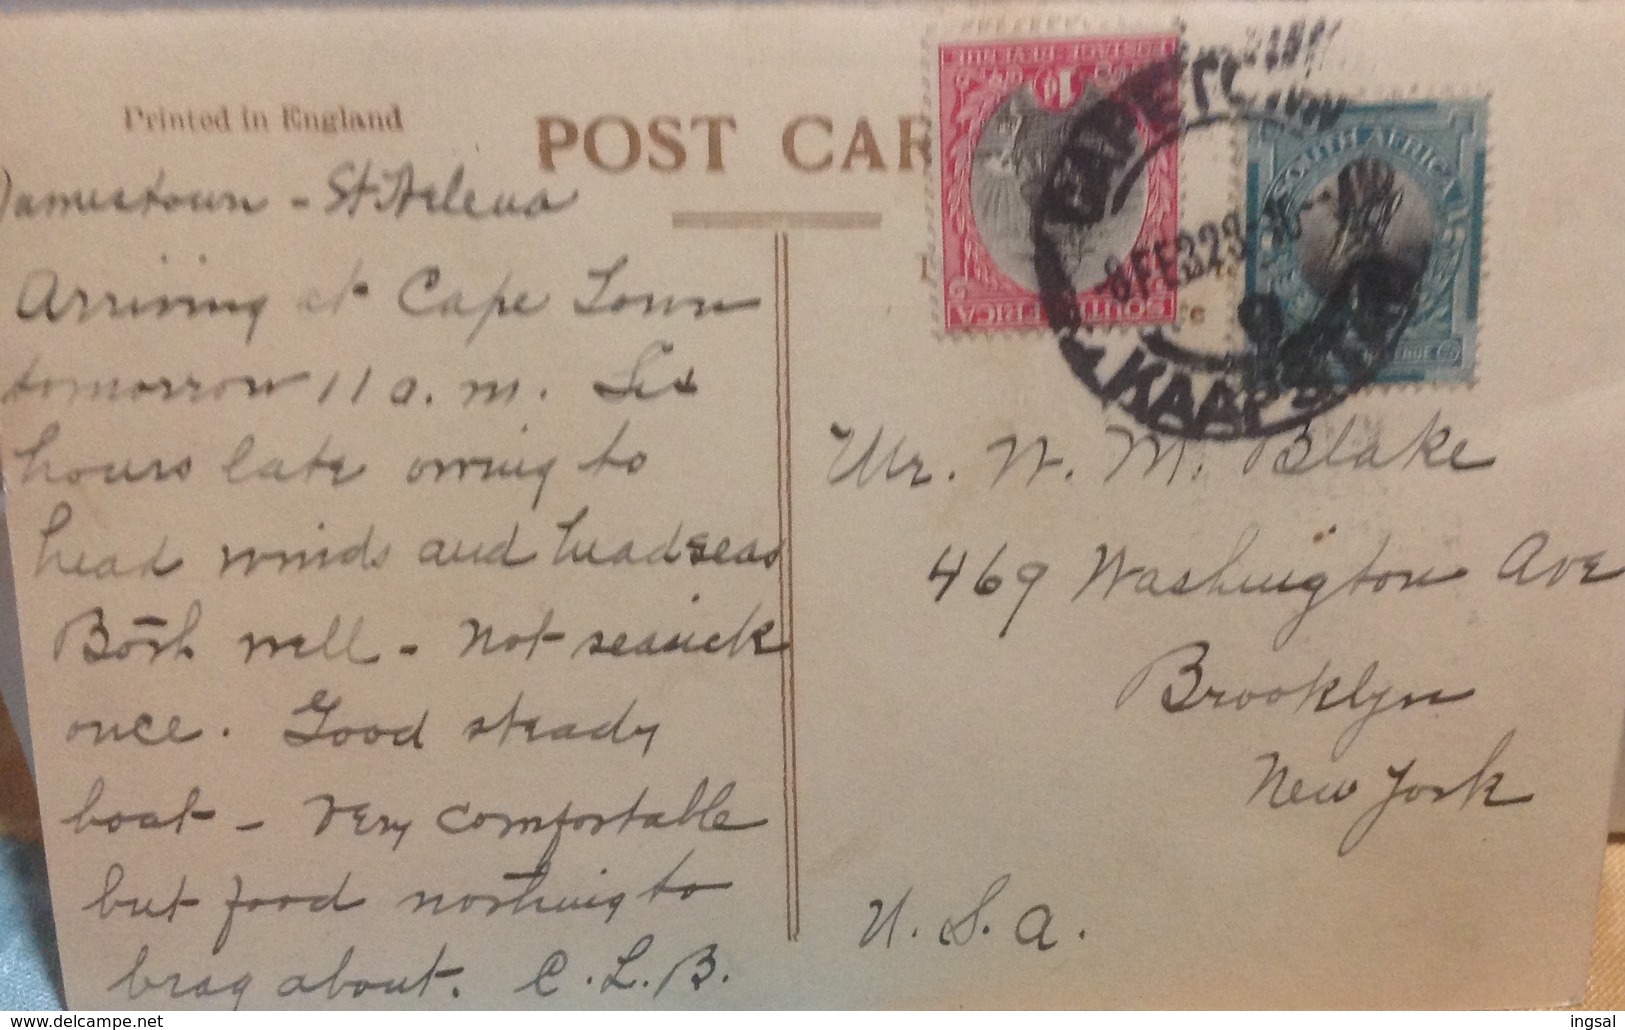 Printed in England
POST CAR
Jamestown - St Helena
Arriving at Cape Town
tomorrow 11 a.m. Six
hours late owing to
head winds and head seas
Both well - not seasick
once. Good steady
boat - very comfortable
but food nothing to
brag about. C.L.B.
Mr. W. M. Blake
469 Washington Ave
Brooklyn
New York
U.S.A.
POSTAGE REVENUE
1D
SOUTH AFRICA
SOUTH AFRICA
CAPE TOWN
8 FE 32
KAAPSTAD
www.delcampe.net
ingsal